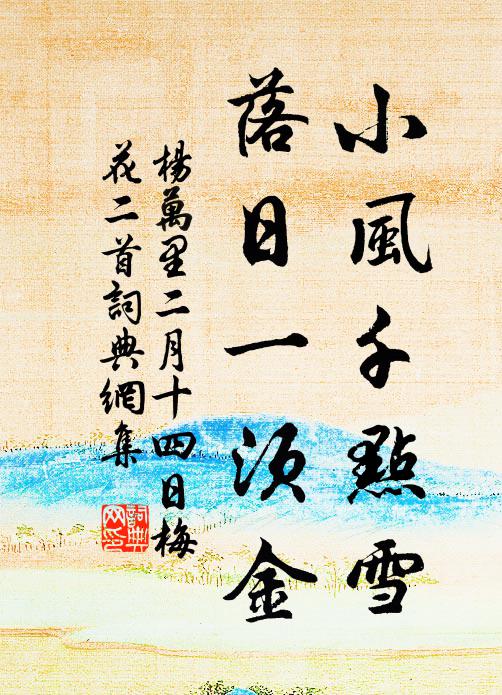 小風千點雪
落日一須金
楊萬里二月十四日梅
花二首詞典網集